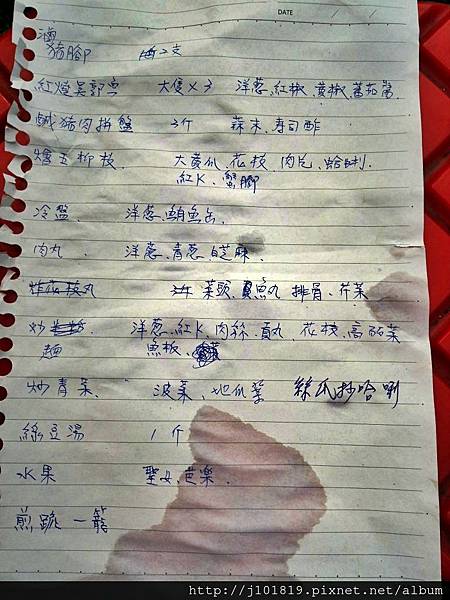 DATE / /
滷
豬腳 2支
紅燒吳郭魚 大隻×3 洋蔥、紅椒、黃椒、蕃茄醬
鹹豬肉拼盤 3斤 蒜末、壽司醋
燴五柳枝 大黃瓜、花枝、肉片、蛤蜊.
紅K、蟹腳
冷盤、 洋蔥、鮪魚缶、
肉丸、 洋蔥、青蔥、白芝麻、
炸花枝丸 菜頭、魚丸 排骨、芹菜
炒 洋蔥、紅K、肉絲、貢丸、花枝、高麗菜
麵 魚板、
炒青菜、 波菜、地瓜葉 絲瓜炒哈唎
綠豆湯 1斤
水果 聖女、芭樂、
煎跪 一籠
http://j101819.pixnet.net/album